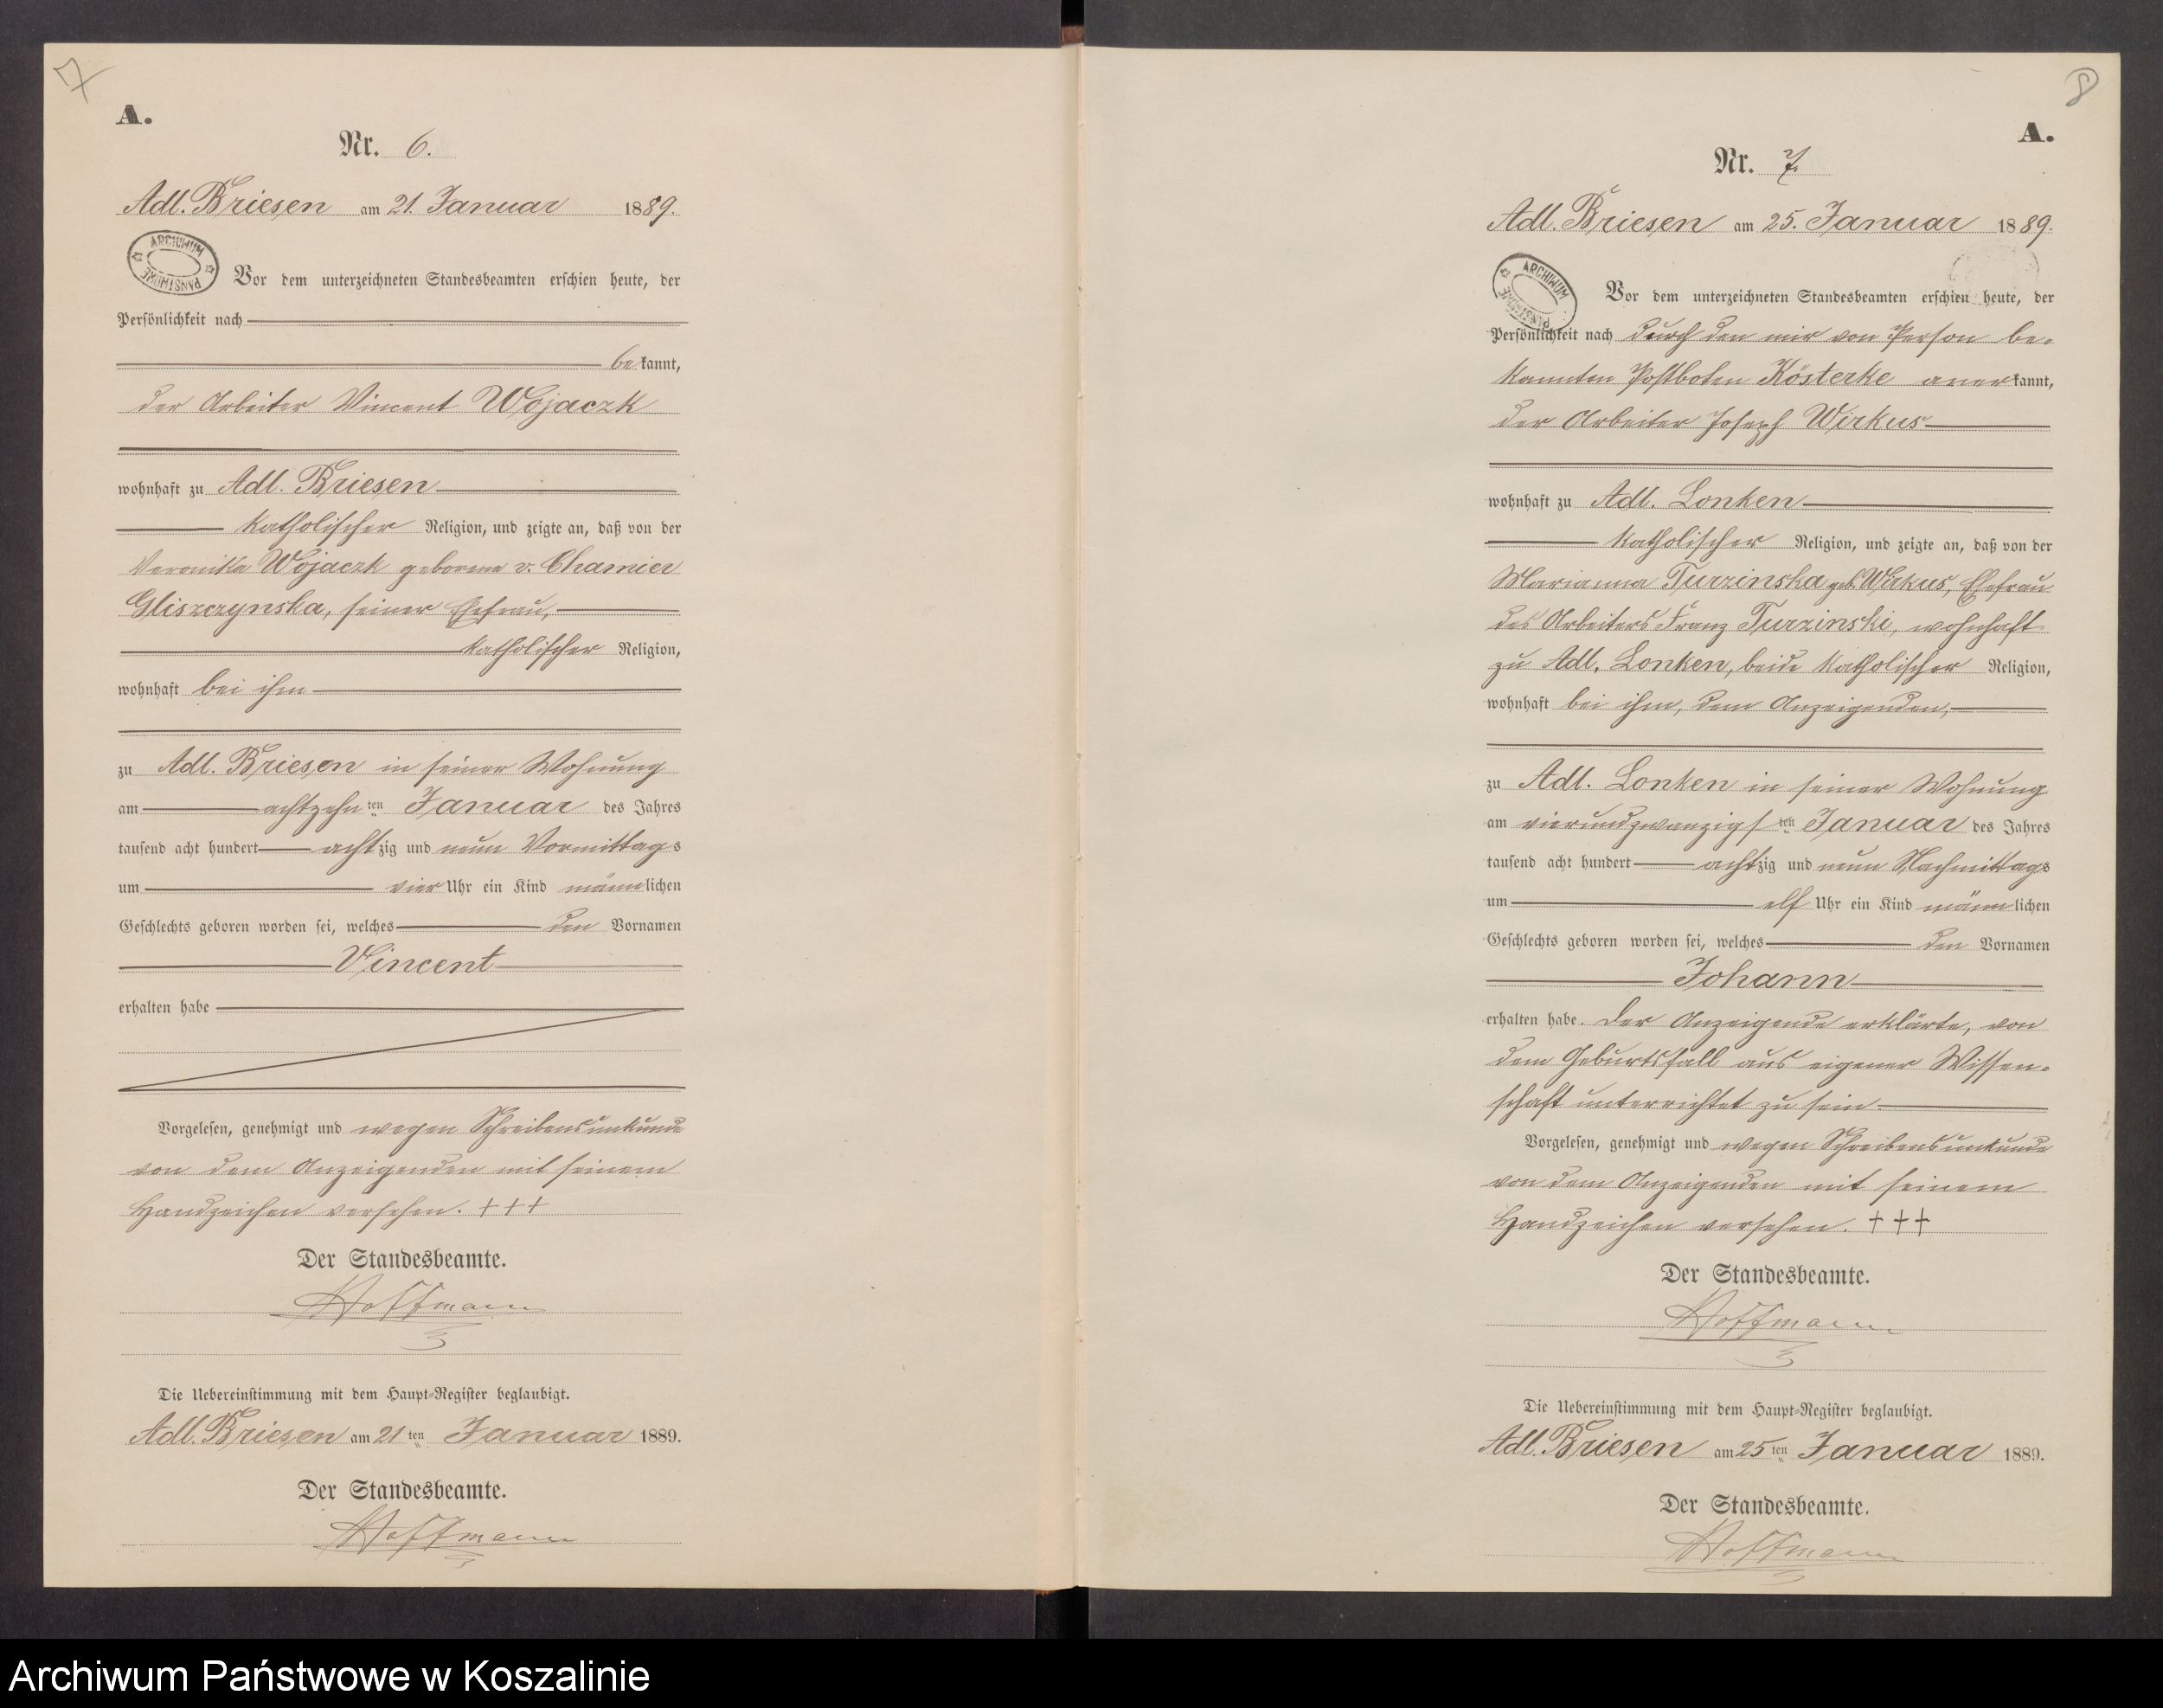 7
A.
Nr. 6.
Adl. Briesen am 21. Januar 1889.
ARCHIWUM PAŃSTWOWE
Vor dem unterzeichneten Standesbeamten erschien heute, der
Persönlichkeit nach
bekannt,
der Arbeiter Vincent Wojaczk
wohnhaft zu Adl. Briesen
katholischer Religion, und zeigte an, daß von der
Veronika Wojaczk geborene v. Chamier
Gliszczynska, seiner Ehefrau,
katholischer Religion,
wohnhaft bei ihm
zu Adl. Briesen in seiner Wohnung
am achtzehnten Januar des Jahres
tausend acht hundert achtzig und neun Vormittags
um vier Uhr ein Kind männlichen
Geschlechts geboren worden sei, welches den Vornamen
Vincent
erhalten habe
Vorgelesen, genehmigt und wegen Schreibensunkunde
von dem Anzeigenden mit seinem
Handzeichen versehen. +++
Der Standesbeamte.
Hoffmann
Die Uebereinstimmung mit dem Haupt-Register beglaubigt.
Adl. Briesen am 21ten Januar 1889.
Der Standesbeamte.
Hoffmann
8
A.
Nr. 7.
Adl. Briesen am 25. Januar 1889.
ARCHIWUM PAŃSTWOWE
Vor dem unterzeichneten Standesbeamten erschien heute, der
Persönlichkeit nach durch den mir von Person be-
kannten Postboten Kösterke anerkannt,
der Arbeiter Joseph Wirkus
wohnhaft zu Adl. Lonken
katholischer Religion, und zeigte an, daß von der
Marianna Turzinska geb. Wirkus, Ehefrau
des Arbeiters Franz Turzinski, wohnhaft
zu Adl. Lonken, beide katholischer Religion,
wohnhaft bei ihm, dem Anzeigenden,
zu Adl. Lonken in seiner Wohnung
am vierundzwanzigsten Januar des Jahres
tausend acht hundert achtzig und neun Nachmittags
um elf Uhr ein Kind männlichen
Geschlechts geboren worden sei, welches den Vornamen
Johann
erhalten habe. Der Anzeigende erklärte, von
dem Geburtsfall aus eigener Wissen-
schaft unterrichtet zu sein.
Vorgelesen, genehmigt und wegen Schreibensunkunde
von dem Anzeigenden mit seinem
Handzeichen versehen. +++
Der Standesbeamte.
Hoffmann
Die Uebereinstimmung mit dem Haupt-Register beglaubigt.
Adl. Briesen am 25ten Januar 1889.
Der Standesbeamte.
Hoffmann
Archiwum Państwowe w Koszalinie